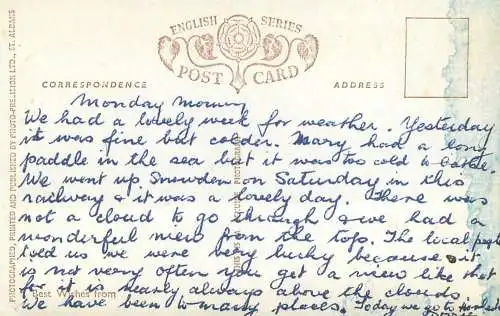 ENGLISH SERIES
POST CARD
CORRESPONDENCE
ADDRESS
Monday Morning
We had a lovely week for weather. Yesterday
it was fine but colder. Mary had a long
paddle in the sea but it was too cold to bathe.
We went up Snowdon on Saturday in this
railway & it was a lovely day. There was
not a cloud to go through & we had a
wonderful view from the top. The local people
told us we were very lucky because it
is not very often you get a view like that
for it is nearly always above the clouds
We have been to many places. Today we go to
Best Wishes from
PHOTOGRAPHED, PRINTED AND PUBLISHED BY PHOTO-PRECISION LTD., ST. ALBANS